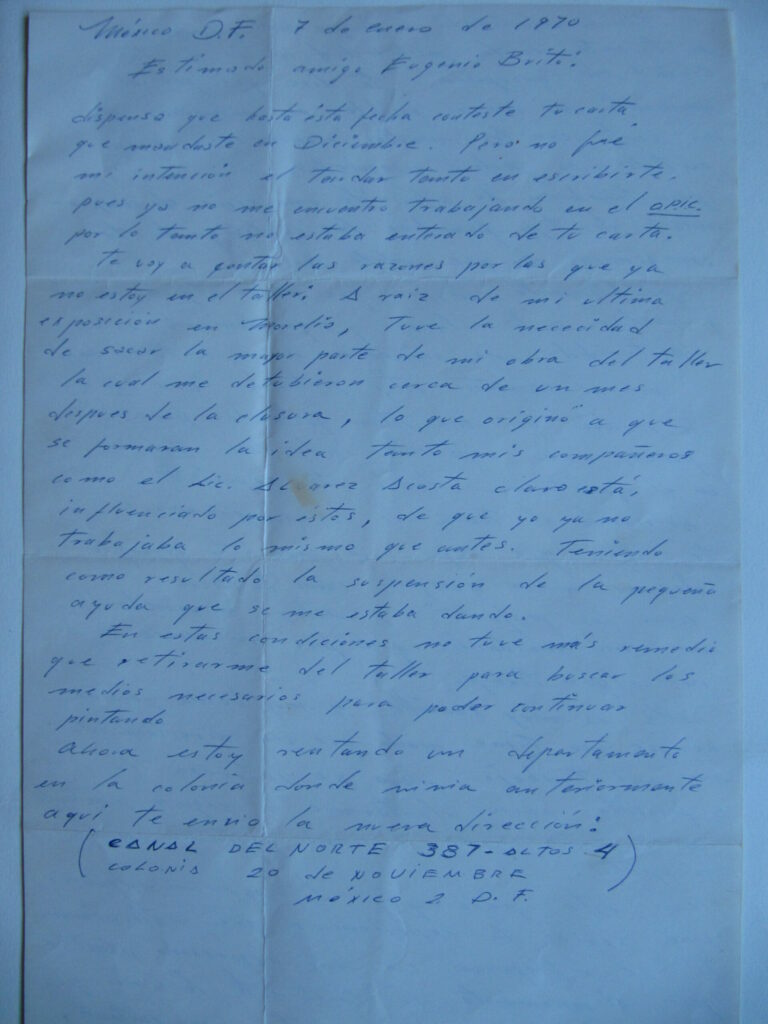 México D.F. 7 de enero de 1970
Estimado amigo Eugenio Brito:
dispensa que hasta ésta fecha conteste tu carta
que mandaste en Diciembre. Pero no fué
mi intención el tardar tanto en escribirte.
pues ya no me encuentro trabajando en el OPIC.
por lo tanto no estaba enterado de tu carta.
te voy a contar las razones por las que ya
no estoy en el taller: A raiz de mi ultima
esposición en Morelia, Tuve la nececidad
de sacar la mayor parte de mi obra del taller
la cual me detubieron cerca de un mes
despues de la clasura, lo que originó a que
se formaran la idea tanto mis compañeros
como el Lic. Alvarez Acosta claro está,
influenciado por éstos, de que yo ya no
trabajaba lo mismo que antes. Teniendo
como resultado la suspensión de la pequeña
ayuda que se me estaba dando.
En estas condiciones no tuve más remedio
que retirarme del taller para buscar los
medios necesarios para poder continuar
pintando
Ahora estoy rentando un departamento
en la colonia donde vivia anteriormente
aqui te envio la nueva dirección:
(CANAL DEL NORTE 387-ALTOS 4
COLONIA 20 de NOVIEMBRE
MÉXICO 2 D.F.)